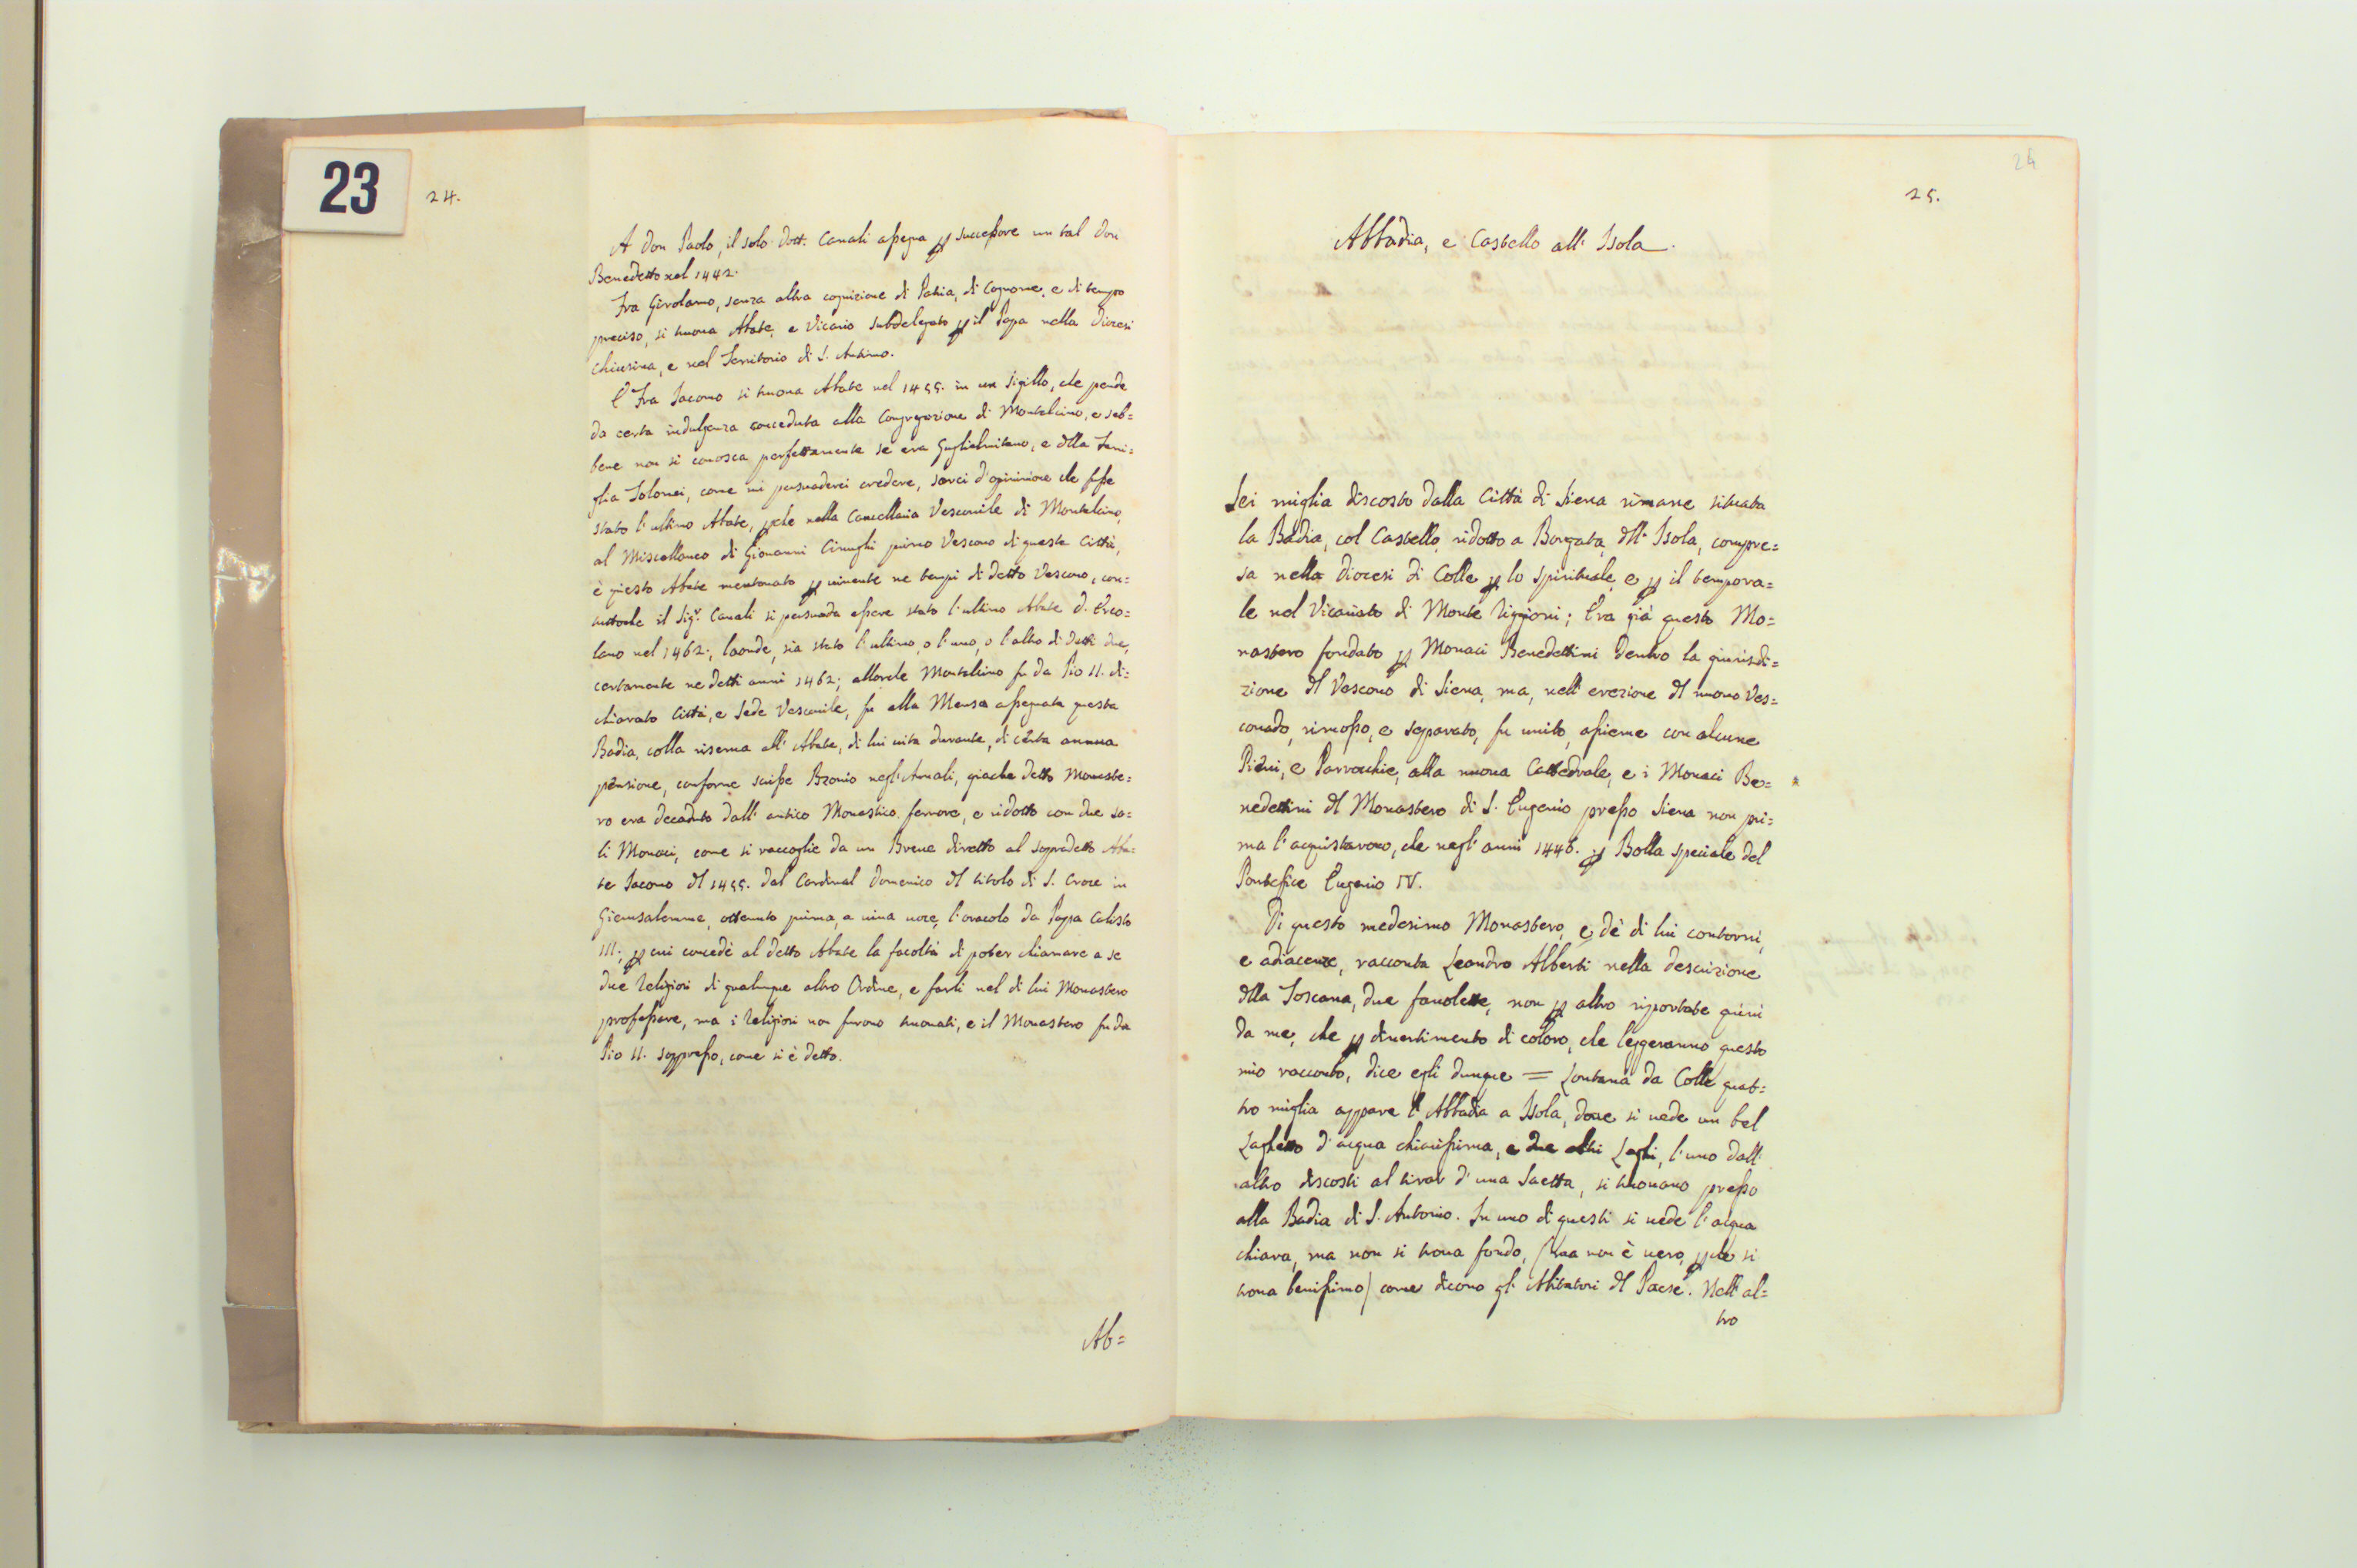 23
24.
A Don Paolo, il solo Dott. Canali assegna p successore un tal Don
Benedetto nel 1442.
Fra Girolamo, senza altra cognizione di Patria, di Cognome, e di tempo
preciso, si truova Abate, e Vicario subdelegato p il Papa nella Diocesi
Chiusina, e nel Territorio di S. Antimo.
E Fra Iacomo si truova Abate nel 1455. in un Sigillo, che pende
da certa indulgenza conceduta alla Congregazione di Montalcino, e seb=
bene non si conosca perfettamente se era Guglielmitano, e dlla Fami=
glia Tolomei, come mi persuaderei credere, sarei d'opinione che fosse
stato l'ultimo Abate, pche nella Cancellaria Vescovile di Montalcino,
al Miscellaneo di Giovanni Cinughi primo Vescovo di questa Città,
è questo Abate mentovato p vivente ne tempi di detto Vescovo, con=
tuttoche il Sigr. Canali si persuada essere stato l'ultimo Abate D. Erco=
lano nel 1462., laonde, sia stato l'ultimo, o l'uno, o l'altro di detti due,
certamente ne detti anni 1462; allorche Montalcino fu da Pio II. di=
chiarato Città, e Sede Vescovile, fu alla Mensa assegnata questa
Badia, colla riserva all' Abate, di lui vita durante, di certa annua
pensione, conforme scrisse Bzovio negl'Annali, giache detto Monaste=
ro era decaduto dall' antico Monastico fervore, e ridotto con due so=
li Monaci, come si raccoglie da un Breve diretto al sopradetto Aba=
te Iacomo dl 1455. dal Cardinal Domenico dl titolo di S. Croce in
Gierusalemme, ottenuto prima, a viva voce, l'oracolo da Papa Calisto
III., p cui concedè al detto Abate la facoltà di poter chiamare a se
due Religiosi di qualunque altro Ordine, e farli nel di lui Monastero
professare, ma i Religiosi non furono truovati, e il Monastero fu da
Pio II. soppresso, come si è detto.
Ab=
24
25.
Abbadia, e Castello all' Isola.
Sei miglia discosto dalla Città di Siena rimane situata
la Badia, col Castello, ridotto a Borgata, dll' Isola, compre=
sa nella Diocesi di Colle p lo spirituale, e p il tempora=
le nel Vicariato di Monte Riggioni; Era già questo Mo=
nastero fondato p Monaci Benedettini dentro la giurisdi=
zione dl Vescovo di Siena, ma, nell' erezione dl nuovo Ves=
covado, rimosso, e separato, fu unito, assieme con alcune
Pievi, e Parrocchie, alla nuova Cattedrale, e i Monaci Be=
nedettini dl Monastero di S. Eugenio presso Siena non pri=
ma l'acquistarono, che negl' anni 1446. p Bolla speciale del
Pontefice Eugenio IV.
Di questo medesimo Monastero, e dè di lui contorni,
e adiacenze, racconta Leandro Alberti nella descrizione
dlla Toscana, due favolette, non p altro riportate quivi
da me, che p divertimento di coloro, che leggeranno questo
mio racconto, dice egli dunque = Lontana da Colle quat=
tro miglia appare l'Abbadia a Isola, dove si vede un bel
Laghetto d'acqua chiarissima, e due altri Laghi, l'uno dall'
altro discosti al tirar d'una Saetta, si truovano presso
alla Badia di S. Antonio. In uno di questi si vede l'acqua
chiara, ma non si trova fondo, (ma non è vero, pche si
trova benissimo) come dicono gl' Abitatori dl Paese. Nell' al=
tro